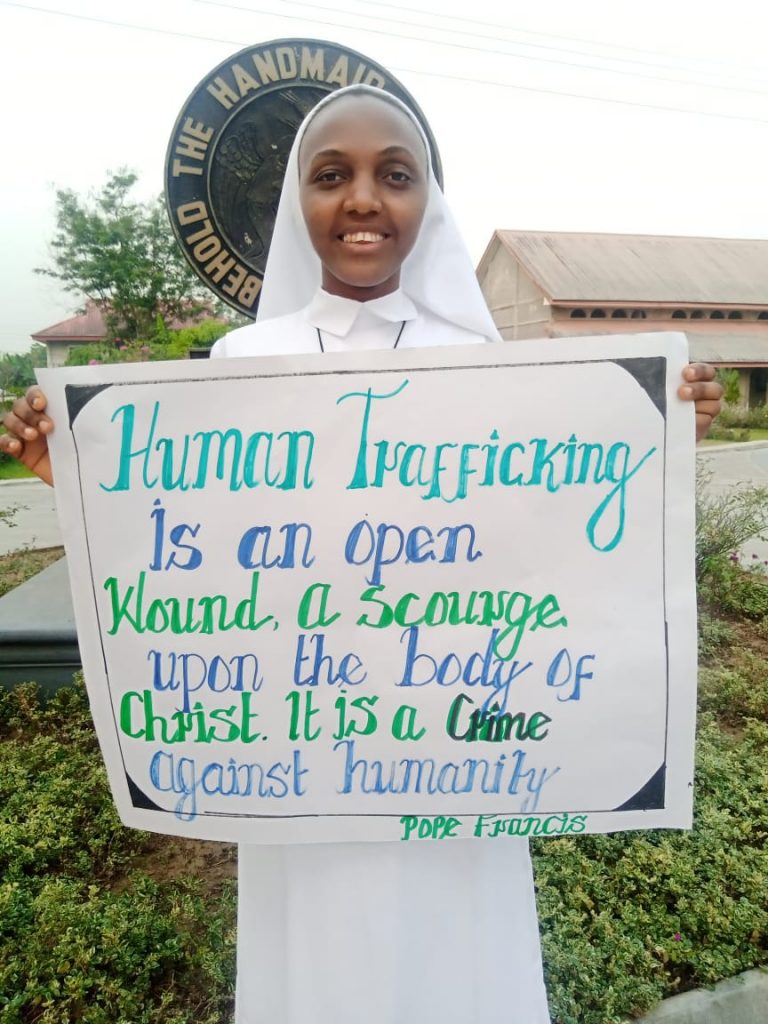 BEHOLD THE HANDMAID
Human Trafficking
is an open
Wound, a scourge
upon the body of
Christ. It is a Crime
against humanity
POPE Francis